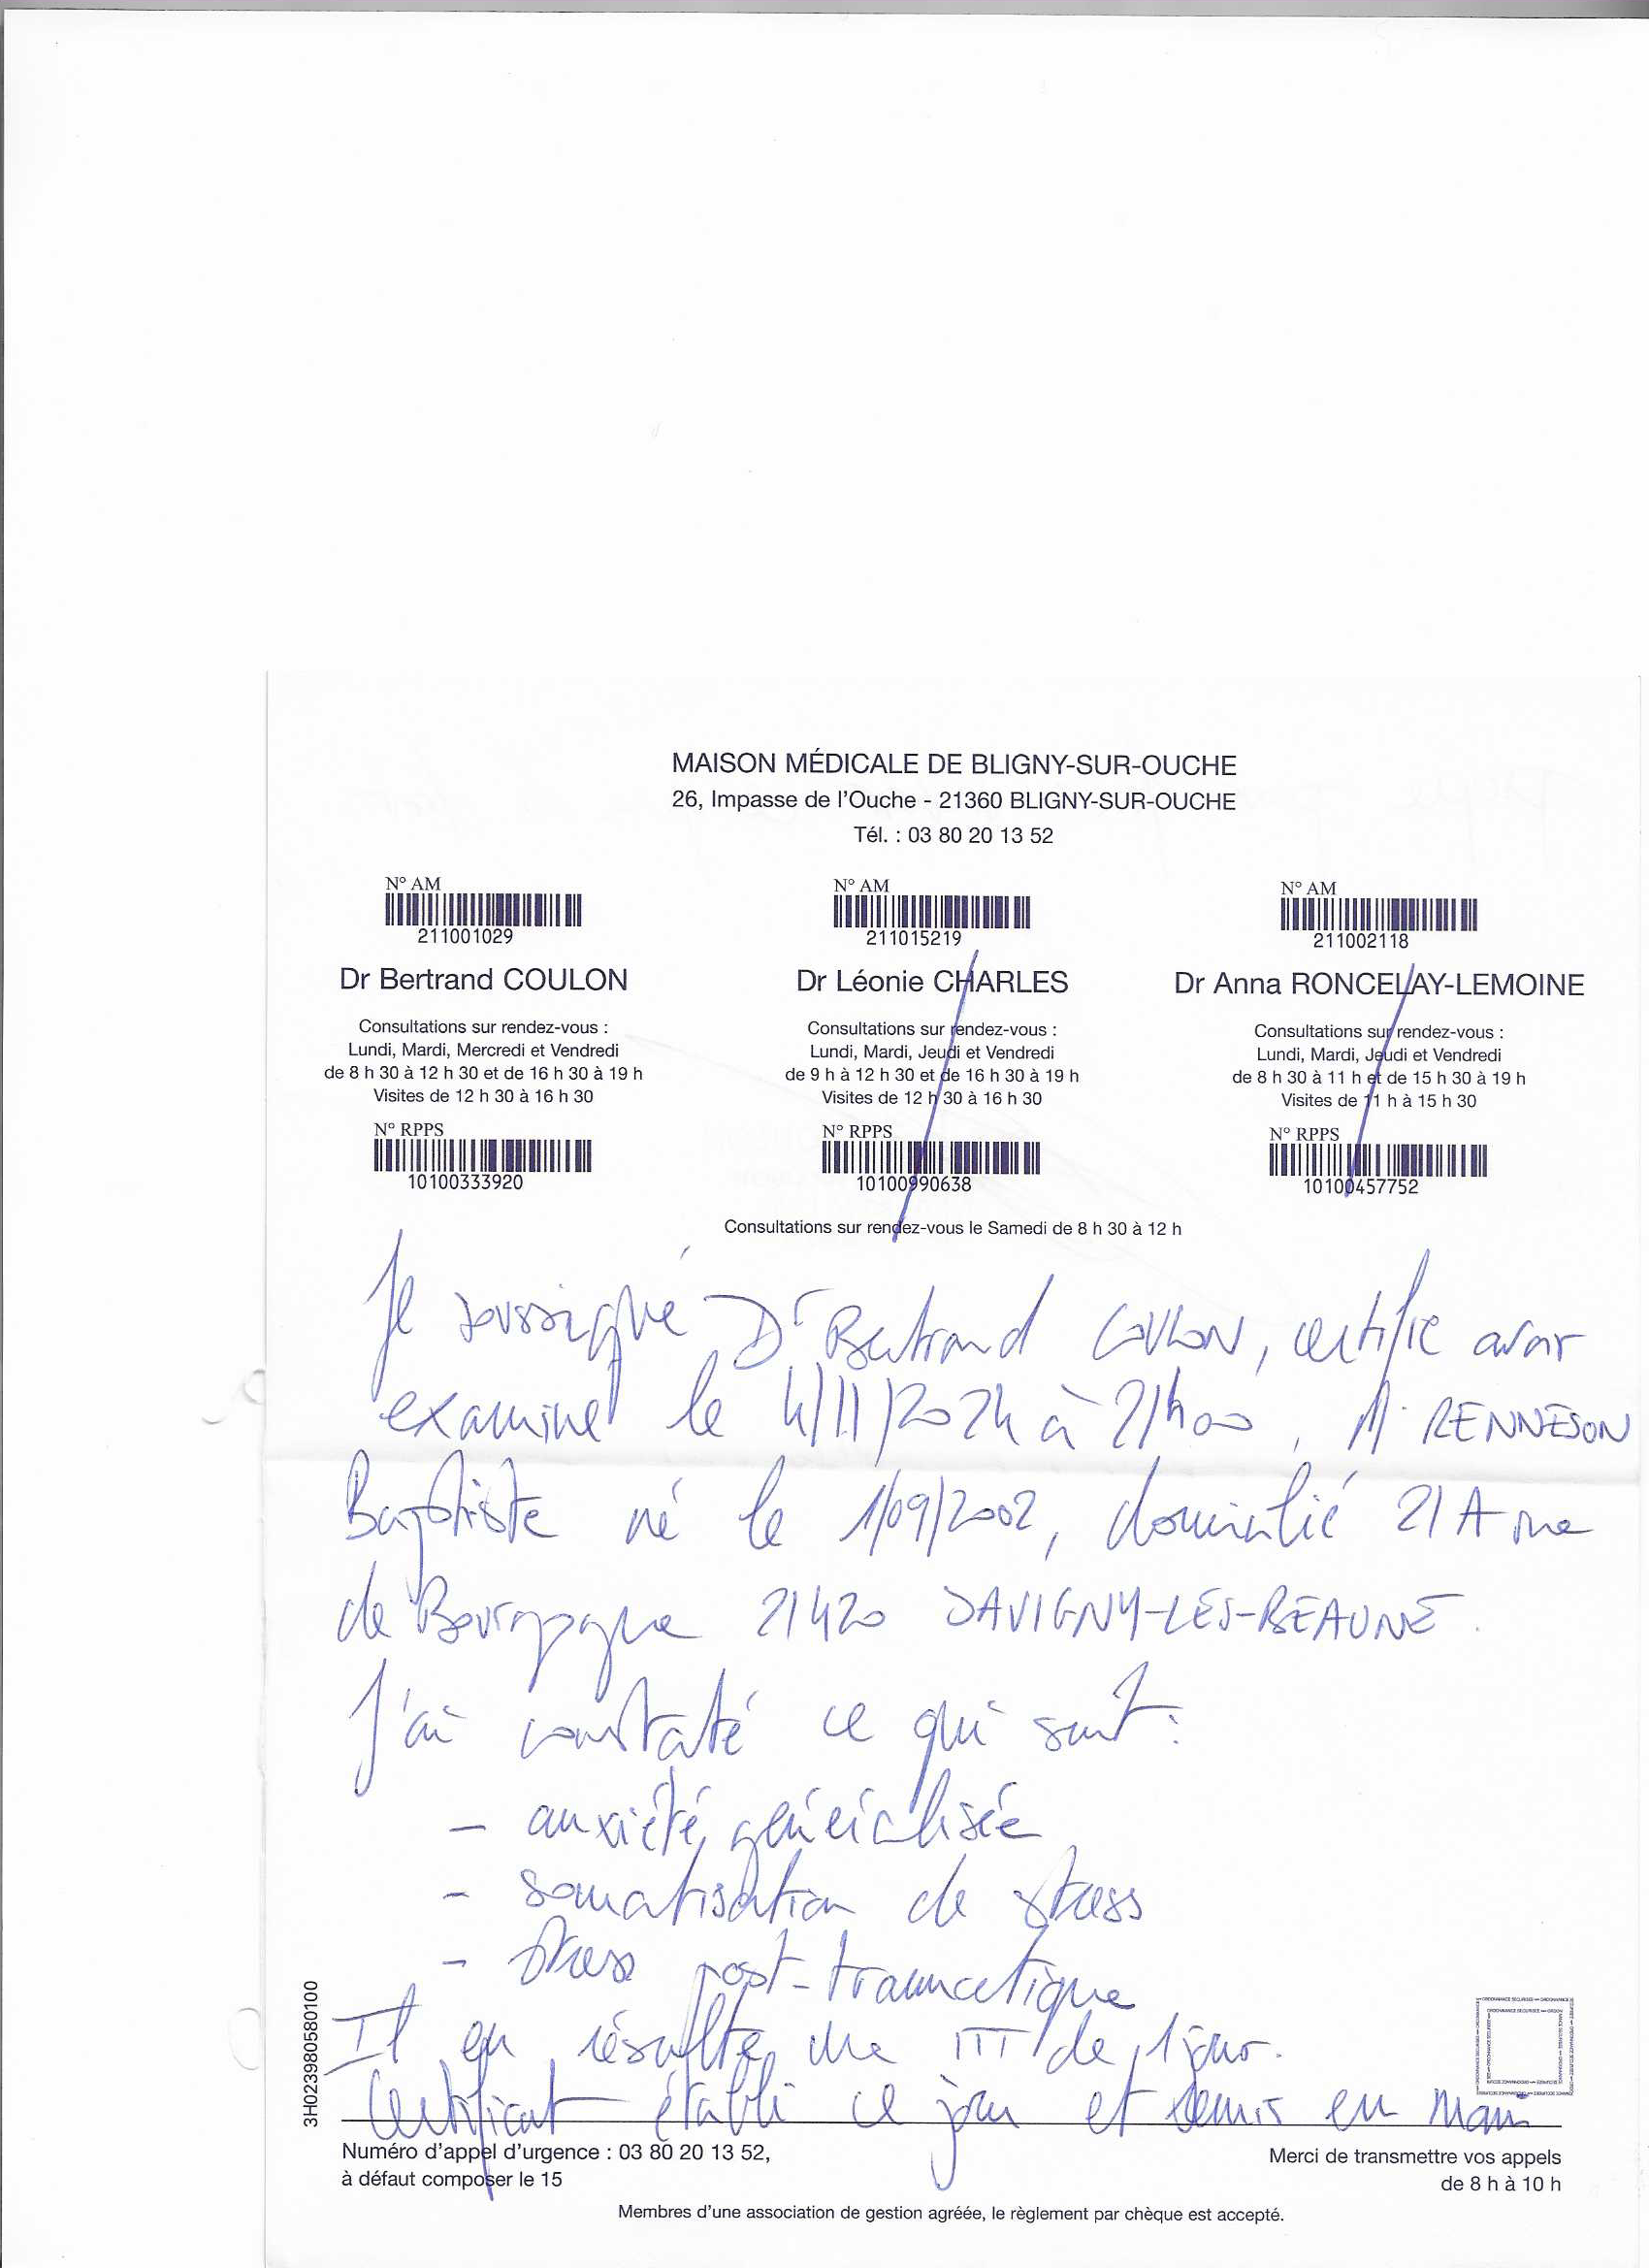 MAISON MÉDICALE DE BLIGNY-SUR-OUCHE
26, Impasse de l'Ouche - 21360 BLIGNY-SUR-OUCHE
Tél. : 03 80 20 13 52
N° AM
211001029
Dr Bertrand COULON
Consultations sur rendez-vous :
Lundi, Mardi, Mercredi et Vendredi
de 8 h 30 à 12 h 30 et de 16 h 30 à 19 h
Visites de 12 h 30 à 16 h 30
N° RPPS
10100333920
N° AM
211015219
Dr Léonie CHARLES
Consultations sur rendez-vous :
Lundi, Mardi, Jeudi et Vendredi
de 9 h à 12 h 30 et de 16 h 30 à 19 h
Visites de 12 h 30 à 16 h 30
N° RPPS
10100990638
N° AM
211002118
Dr Anna RONCELAY-LEMOINE
Consultations sur rendez-vous :
Lundi, Mardi, Jeudi et Vendredi
de 8 h 30 à 11 h et de 15 h 30 à 19 h
Visites de 11 h à 15 h 30
N° RPPS
10100457752
Consultations sur rendez-vous le Samedi de 8 h 30 à 12 h
Je soussigné Dr Bertrand COULON, certifie avoir
examiné le 4/11/2024 à 21h00, M. RENNESON
Baptiste né le 1/09/2002, domicilié 21 A rue
de Bourgogne 21420 SAVIGNY-LES-BEAUNE.
J'ai constaté ce qui suit :
- anxiété généralisée
- somatisation de stress
- stress post-traumatique
Il en résulte une ITT de 1 jour.
Certificat établi ce jour et remis en main
3H0239805580100
Numéro d'appel d'urgence : 03 80 20 13 52,
à défaut composer le 15
Merci de transmettre vos appels
de 8 h à 10 h
Membres d'une association de gestion agréée, le règlement par chèque est accepté.